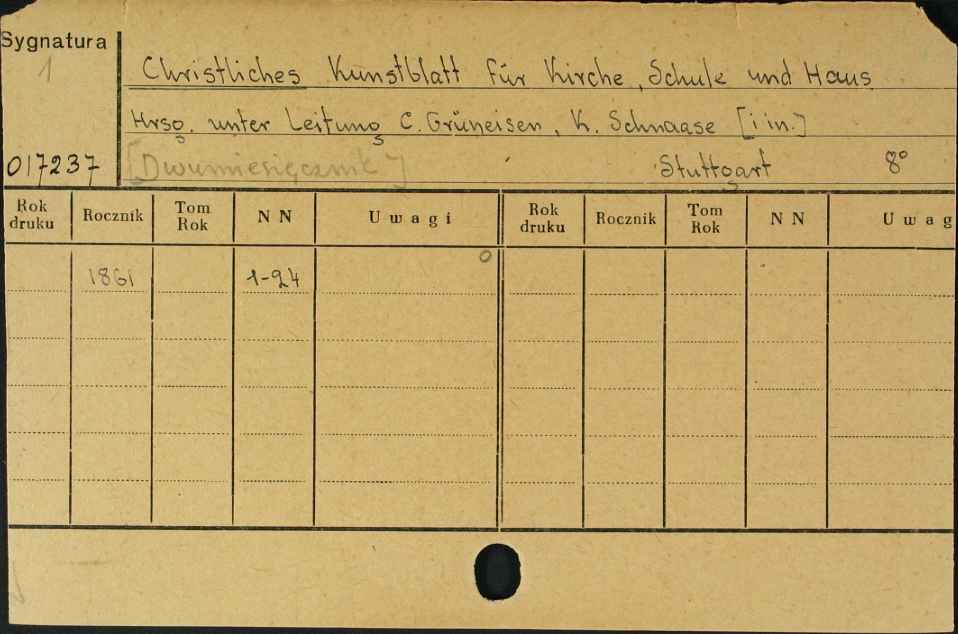 Sygnatura
1
Christliches Kunstblatt für Kirche, Schule und Haus
Hrsg. unter Leitung C. Grüneisen, K. Schnaase [i in.]
017237 [Dwumiesięcznik] Stuttgart 8°
Rok druku Rocznik Tom Rok NN Uwagi Rok druku Rocznik Tom Rok NN Uwag
1861 1-24